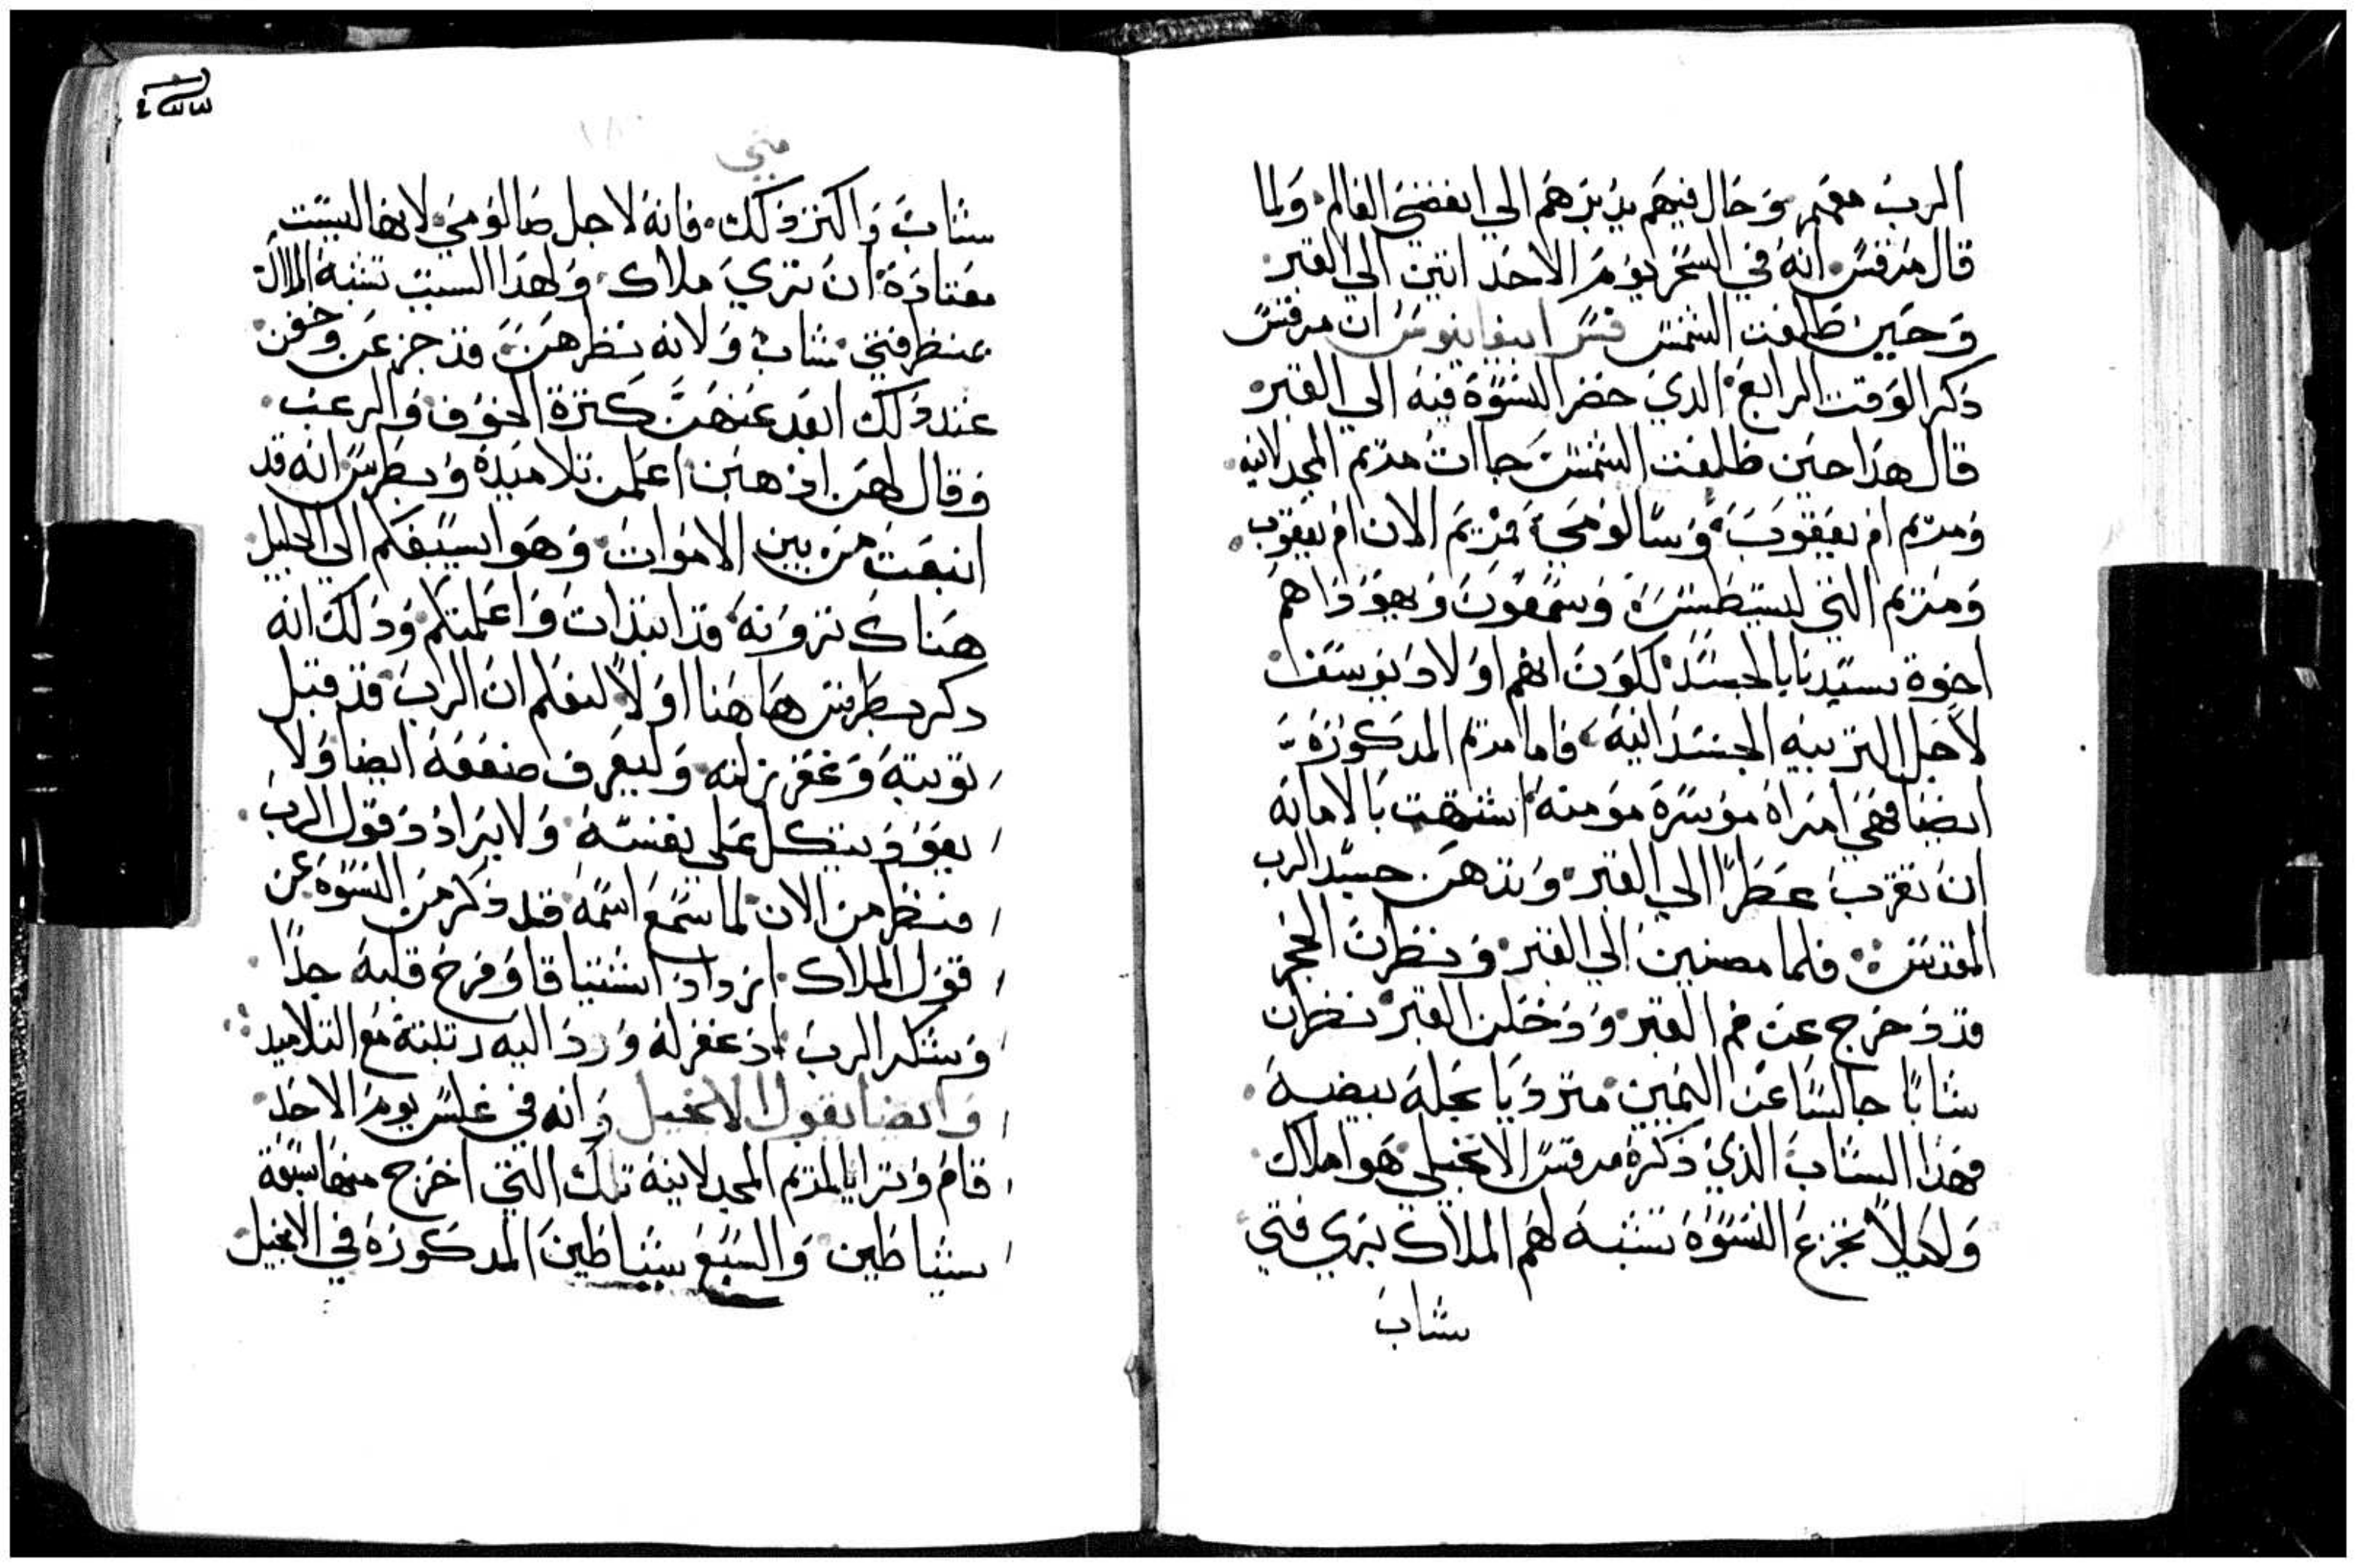 الرب معهم وحال فيهم يدبرهم الي انقضي العالم ولما
قال مرقس انه في السحر يوم الاحد اتين الي القبر
وحين طلعت الشمس فسر ابيفانيوس ان مرقس
ذكر الوقت الرابع الذي حضر النسوة فيه الي القبر
قال هذا حين طلعت الشمس جاات مريم المجدلانيه
ومريم ام يعقوب وسالومي مريم الان ام يعقوب
ومريم التي ليسطس وسمعون ويهوذا هم
اخوة سيدنا بالجسد لكون انهم اولاد يوسف
لاجل التربيه الجسدانيه فاما مريم المدكورة
ايضا فهي امراة موسرة مومنه اشتهت بالامانه
ان تقرب عطرا الي القبر وتدهن جسد الرب
المقدس فلما مضين الي القبر ونظرن الحجر
قد دحرج عن فم القبر ودخلن القبر نظرن
شابا جالسا عن اليمين مترديا بحلة بيضه
فهذا الشاب الذي ذكره مرقس الانجيلي هوا ملاك
ولكيلا تجزع النسوة تشبه لهم الملاك بزي فتي
شاب
متي
شاب واكثر ذلك فانه لاجل صالومي لانها ليست
معتادة ان تري ملاك ولهذا السبب تشبه الملاك
بمنظر فتي شاب ولانه نظرهن قد جزعن وخفن
عند ذلك ابعد عنهن كثرة الخوف والرعب
وقال لهن اذهبن اعلمن تلاميذه وبطرس انه قد
انبعث من بين الاموات وهوا يسبقكم الي الجليل
هناك ترونه قد ابتدات واعلمتكم وذلك انه
دكر بطرس هاهنا اولا ليعلم ان الرب قد قبل
توبته وغفر زلته وليعرف ضعفه ايضا ولا
يعود يتكل علي نفسه ولا يرادد قول الرب
فبطرس الان لما سمع اسمه قد ذكر من النسوة عن
قول الملاك ازداد اشتياقا وفرح قلبه جدا
وشكر الرب اذ غفر له ورد اليه رتبته مع التلاميد
وايضا يقول الانجيل وانه في غلس يوم الاحد
قام وترايا لمريم المجدلانية تلك التي اخرج منها سبعة
شياطين والسبع شياطين المدكورة في الانجيل